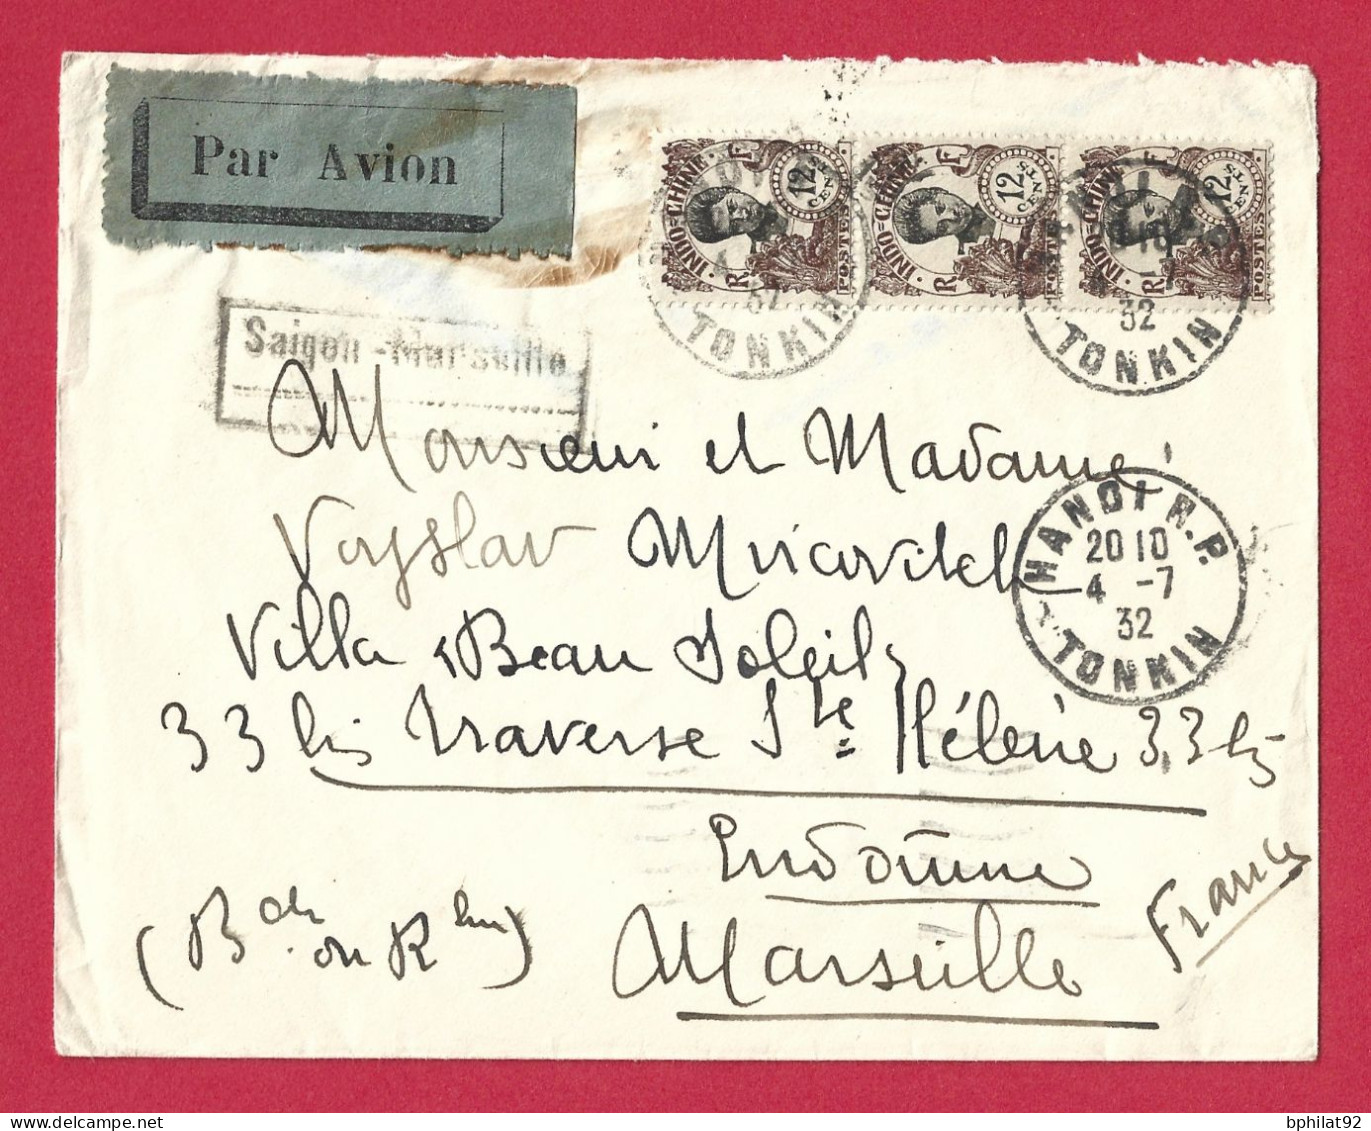 Par Avion
INDO=CHINE
R F
12
CENTS
POSTES
INDO=CHINE
R F
12
CENTS
POSTES
INDO=CHINE
R F
12
CENTS
POSTES
32
TONKIN
32
TONKIN
Saigon - Marseille
Monsieur et Madame
Voyslav
Villa "Beau Soleil"
33 bis Traverse Ste Hélène 33 bis
Endoume
Marseille
France
HANOI R.P.
20 10
4 -7
32
TONKIN
bphilat92